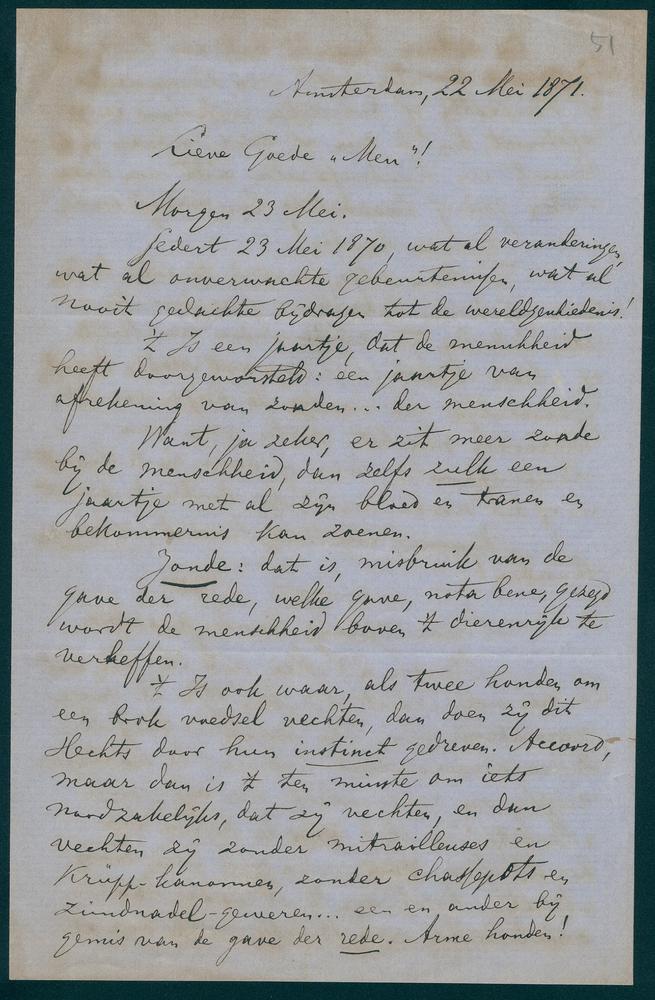 51
Amsterdam, 22 Mei 1871.
Lieve Goede „Men"!
Morgen 23 Mei.
Sedert 23 Mei 1870, wat al veranderingen,
wat al onverwachte gebeurtenissen, wat al
nooit gedachte bijdragen tot de wereldgeschiedenis!
't Is een jaartje, dat de menschheid
heeft doorgeworsteld: een jaartje van
afrekening van zonden... der menschheid.
Want, ja zeker, er zit meer zonde
bij de menschheid, dan zelfs zulk een
jaartje met al zijn bloed en tranen en
bekommernis kan zoenen.
Zonde: dat is, misbruik van de
gave der rede, welke gave, nota bene, gezegd
wordt de menschheid boven 't dierenrijk te
verheffen.
't Is ook waar, als twee honden om
een brok voedsel vechten, dan doen zij dit
slechts door hun instinct gedreven. Accoord,
maar dan is 't ten minste om iets
noodzakelijks, dat zij vechten, en dan
vechten zij zonder mitrailleuses en
Krüpp-kanonnen, zonder chassepôts en
zündnadel-geweren... een en ander bij
gemis van de gave der rede. Arme honden!